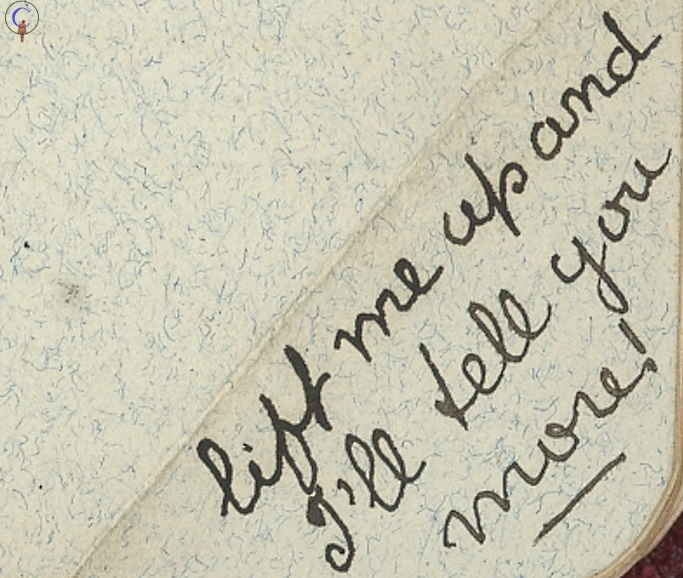 lift me up and
I'll tell you
more!